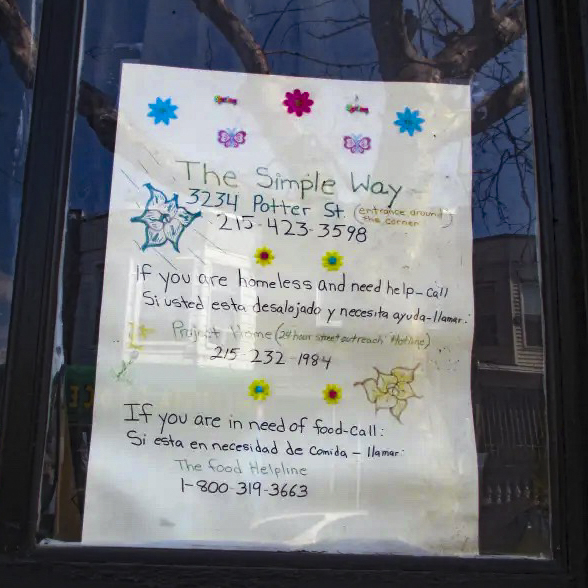 The Simple Way
3234 Potter St. (entrance around
this corner)
215-423-3598
If you are homeless and need help-call
Si usted esta desalojado y necesita ayuda-llamar:
Project Home (24 hour street outreach Hotline)
215-232-1984
If you are in need of food-call:
Si esta en necesidad de comida - llamar:
The food Helpline
1-800-319-3663